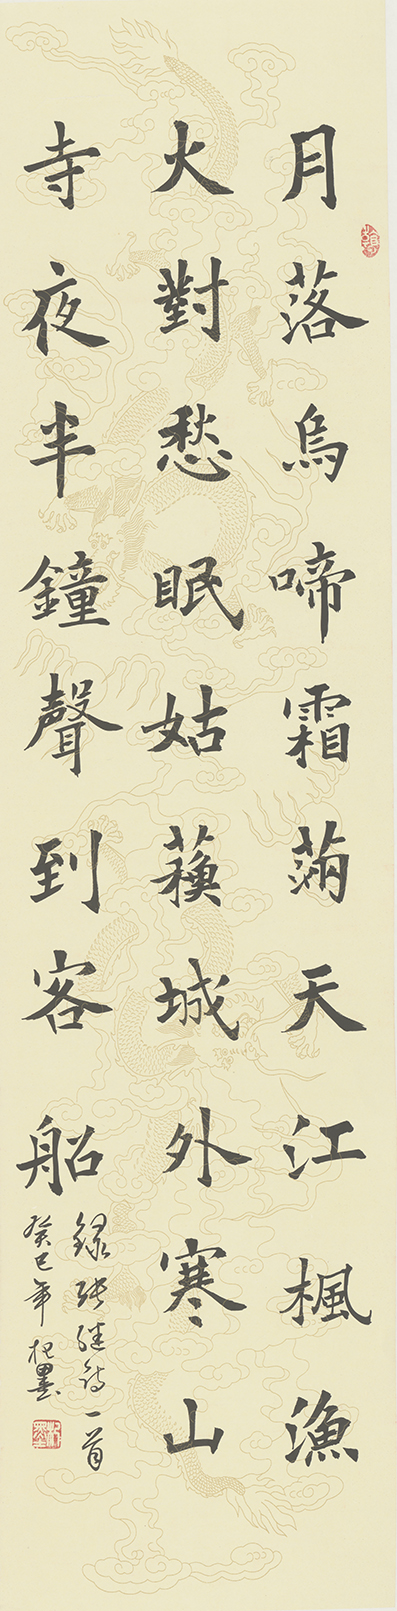 月落烏啼霜滿天江楓漁
火對愁眠姑蘇城外寒山
寺夜半鐘聲到客船
録張繼詩一首
癸巳年